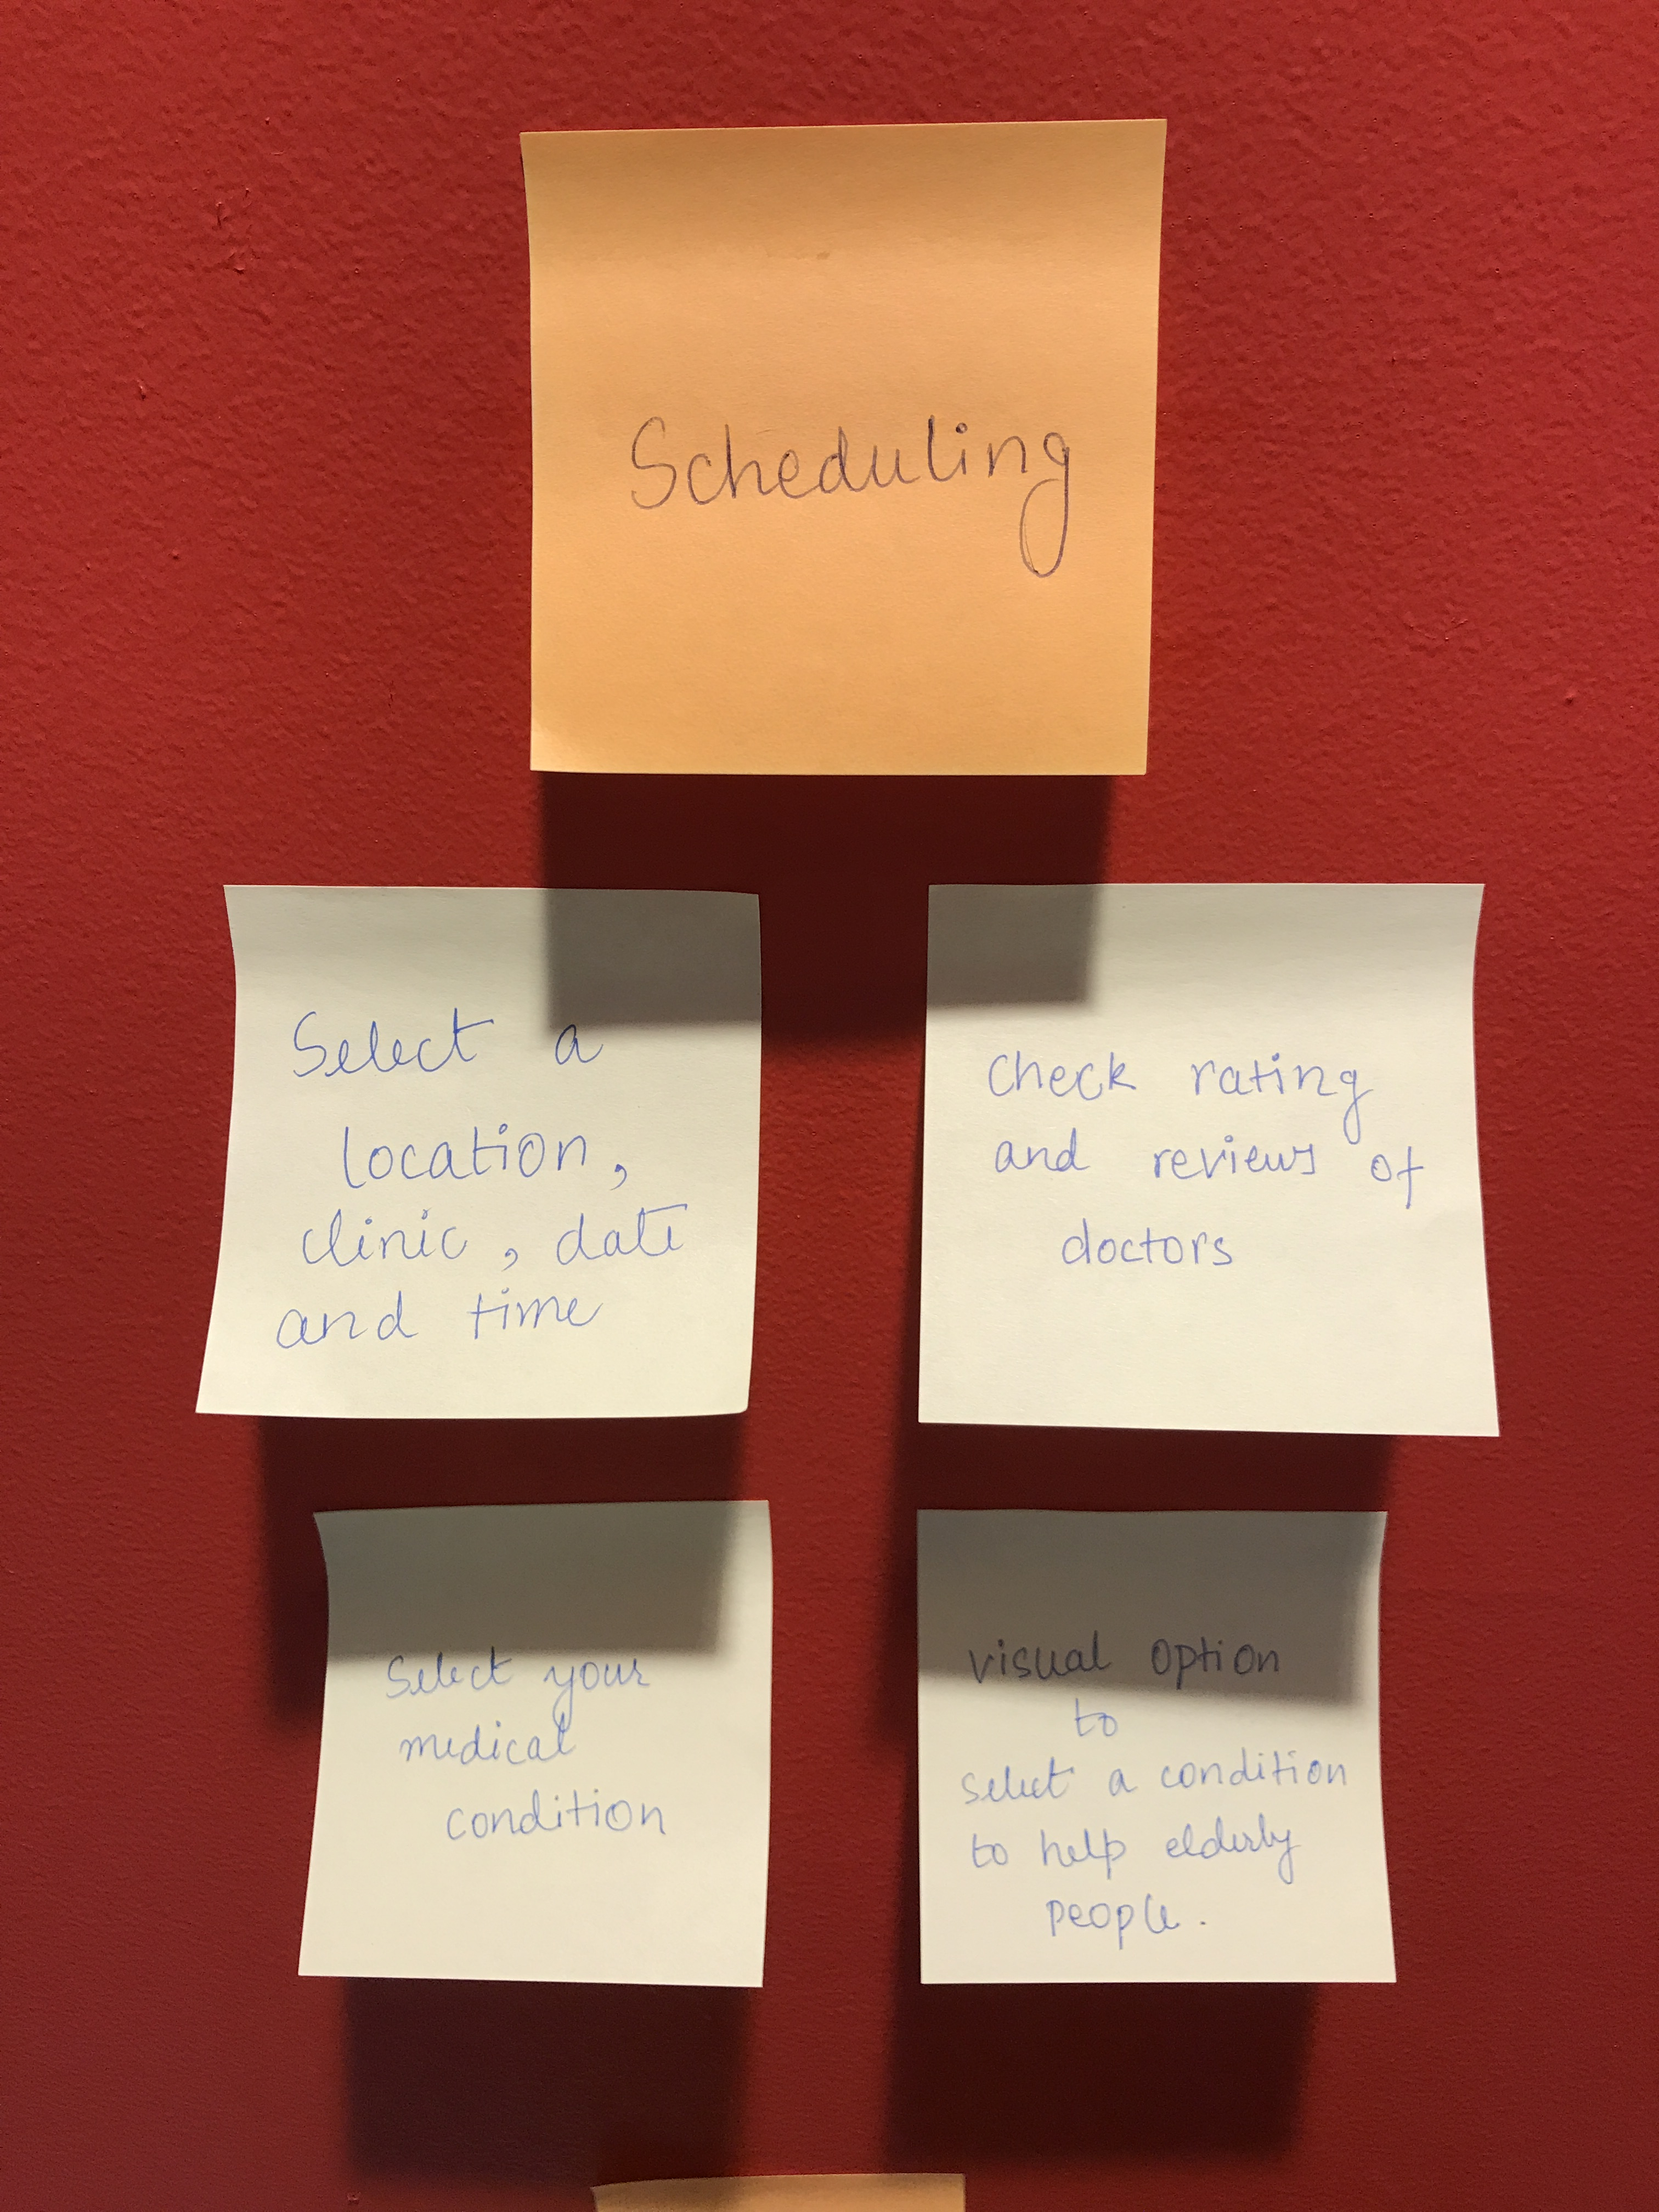 Scheduling
Select a
location,
clinic, date
and time
check rating
and reviews of
doctors
Select your
medical
condition
visual option
to
select a condition
to help elderly
people.